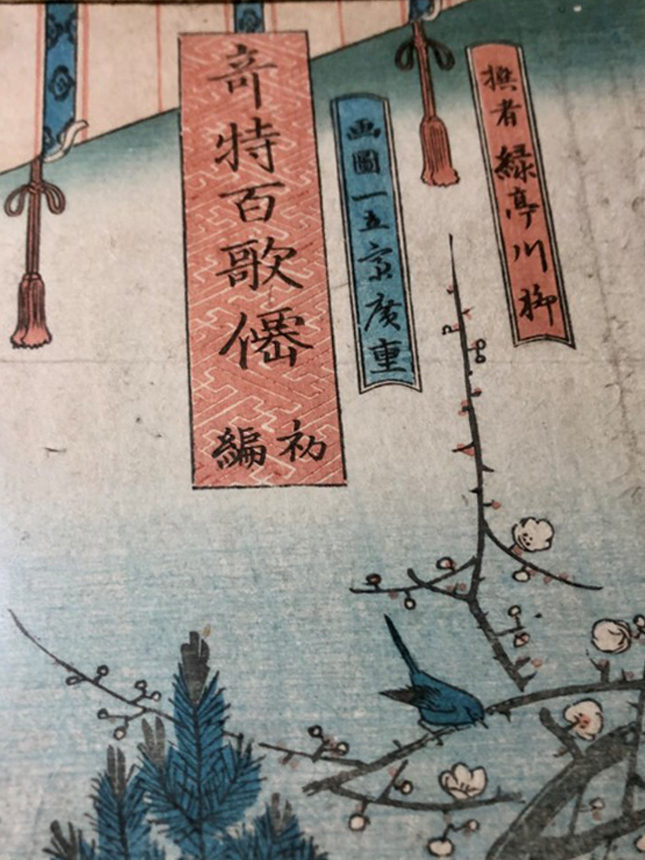 撰者 緑亭川柳
画圖 一立斎廣重
竒特百歌僊
初編